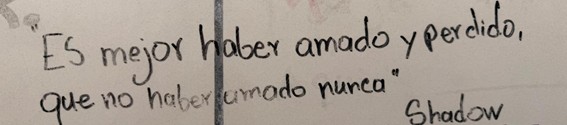 "Es mejor haber amado y perdido,
que no haber amado nunca"
Shadow